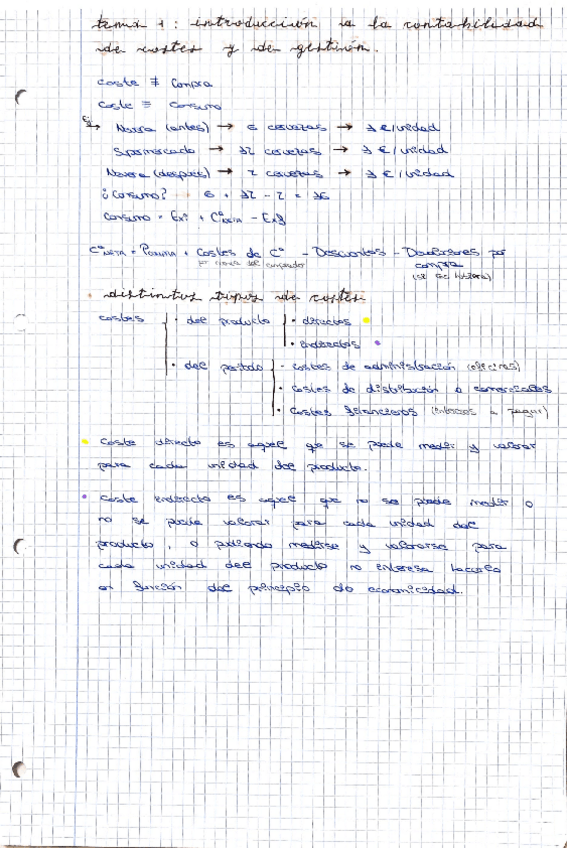 tema 1: introducción a la contabilidad
de costes y de gestión.
Coste ≠ Compra
Coste = Consumo
Ej → Nevera (antes) → 6 cervezas → 1 €/unidad
Supermercado → 12 cervezas → 1 €/unidad
Nevera (después) → 2 cervezas → 1 €/unidad
¿Consumo? 6 + 12 - 2 = 16
Consumo = Exi + Cª NETA - Exf
Cª NETA = + Costes de Cª - Descuentos - Devoluciones por
compra
por cuenta del comprador
distintos tipos de costes:
costes
· del producto
· directos
· indirectos
· del periodo
· costes de administración (oficinas)
· costes de distribución o comerciales
· costes financieros (intereses a pagar)
· Coste directo es aquel que se puede medir y valorar
para cada unidad del producto.
· Coste indirecto es aquel que no se puede medir o
no se puede valorar para cada unidad del
producto, o pudiendo medirse y valorarse para
cada unidad del producto no interesa hacerlo
en función del principio de economicidad.